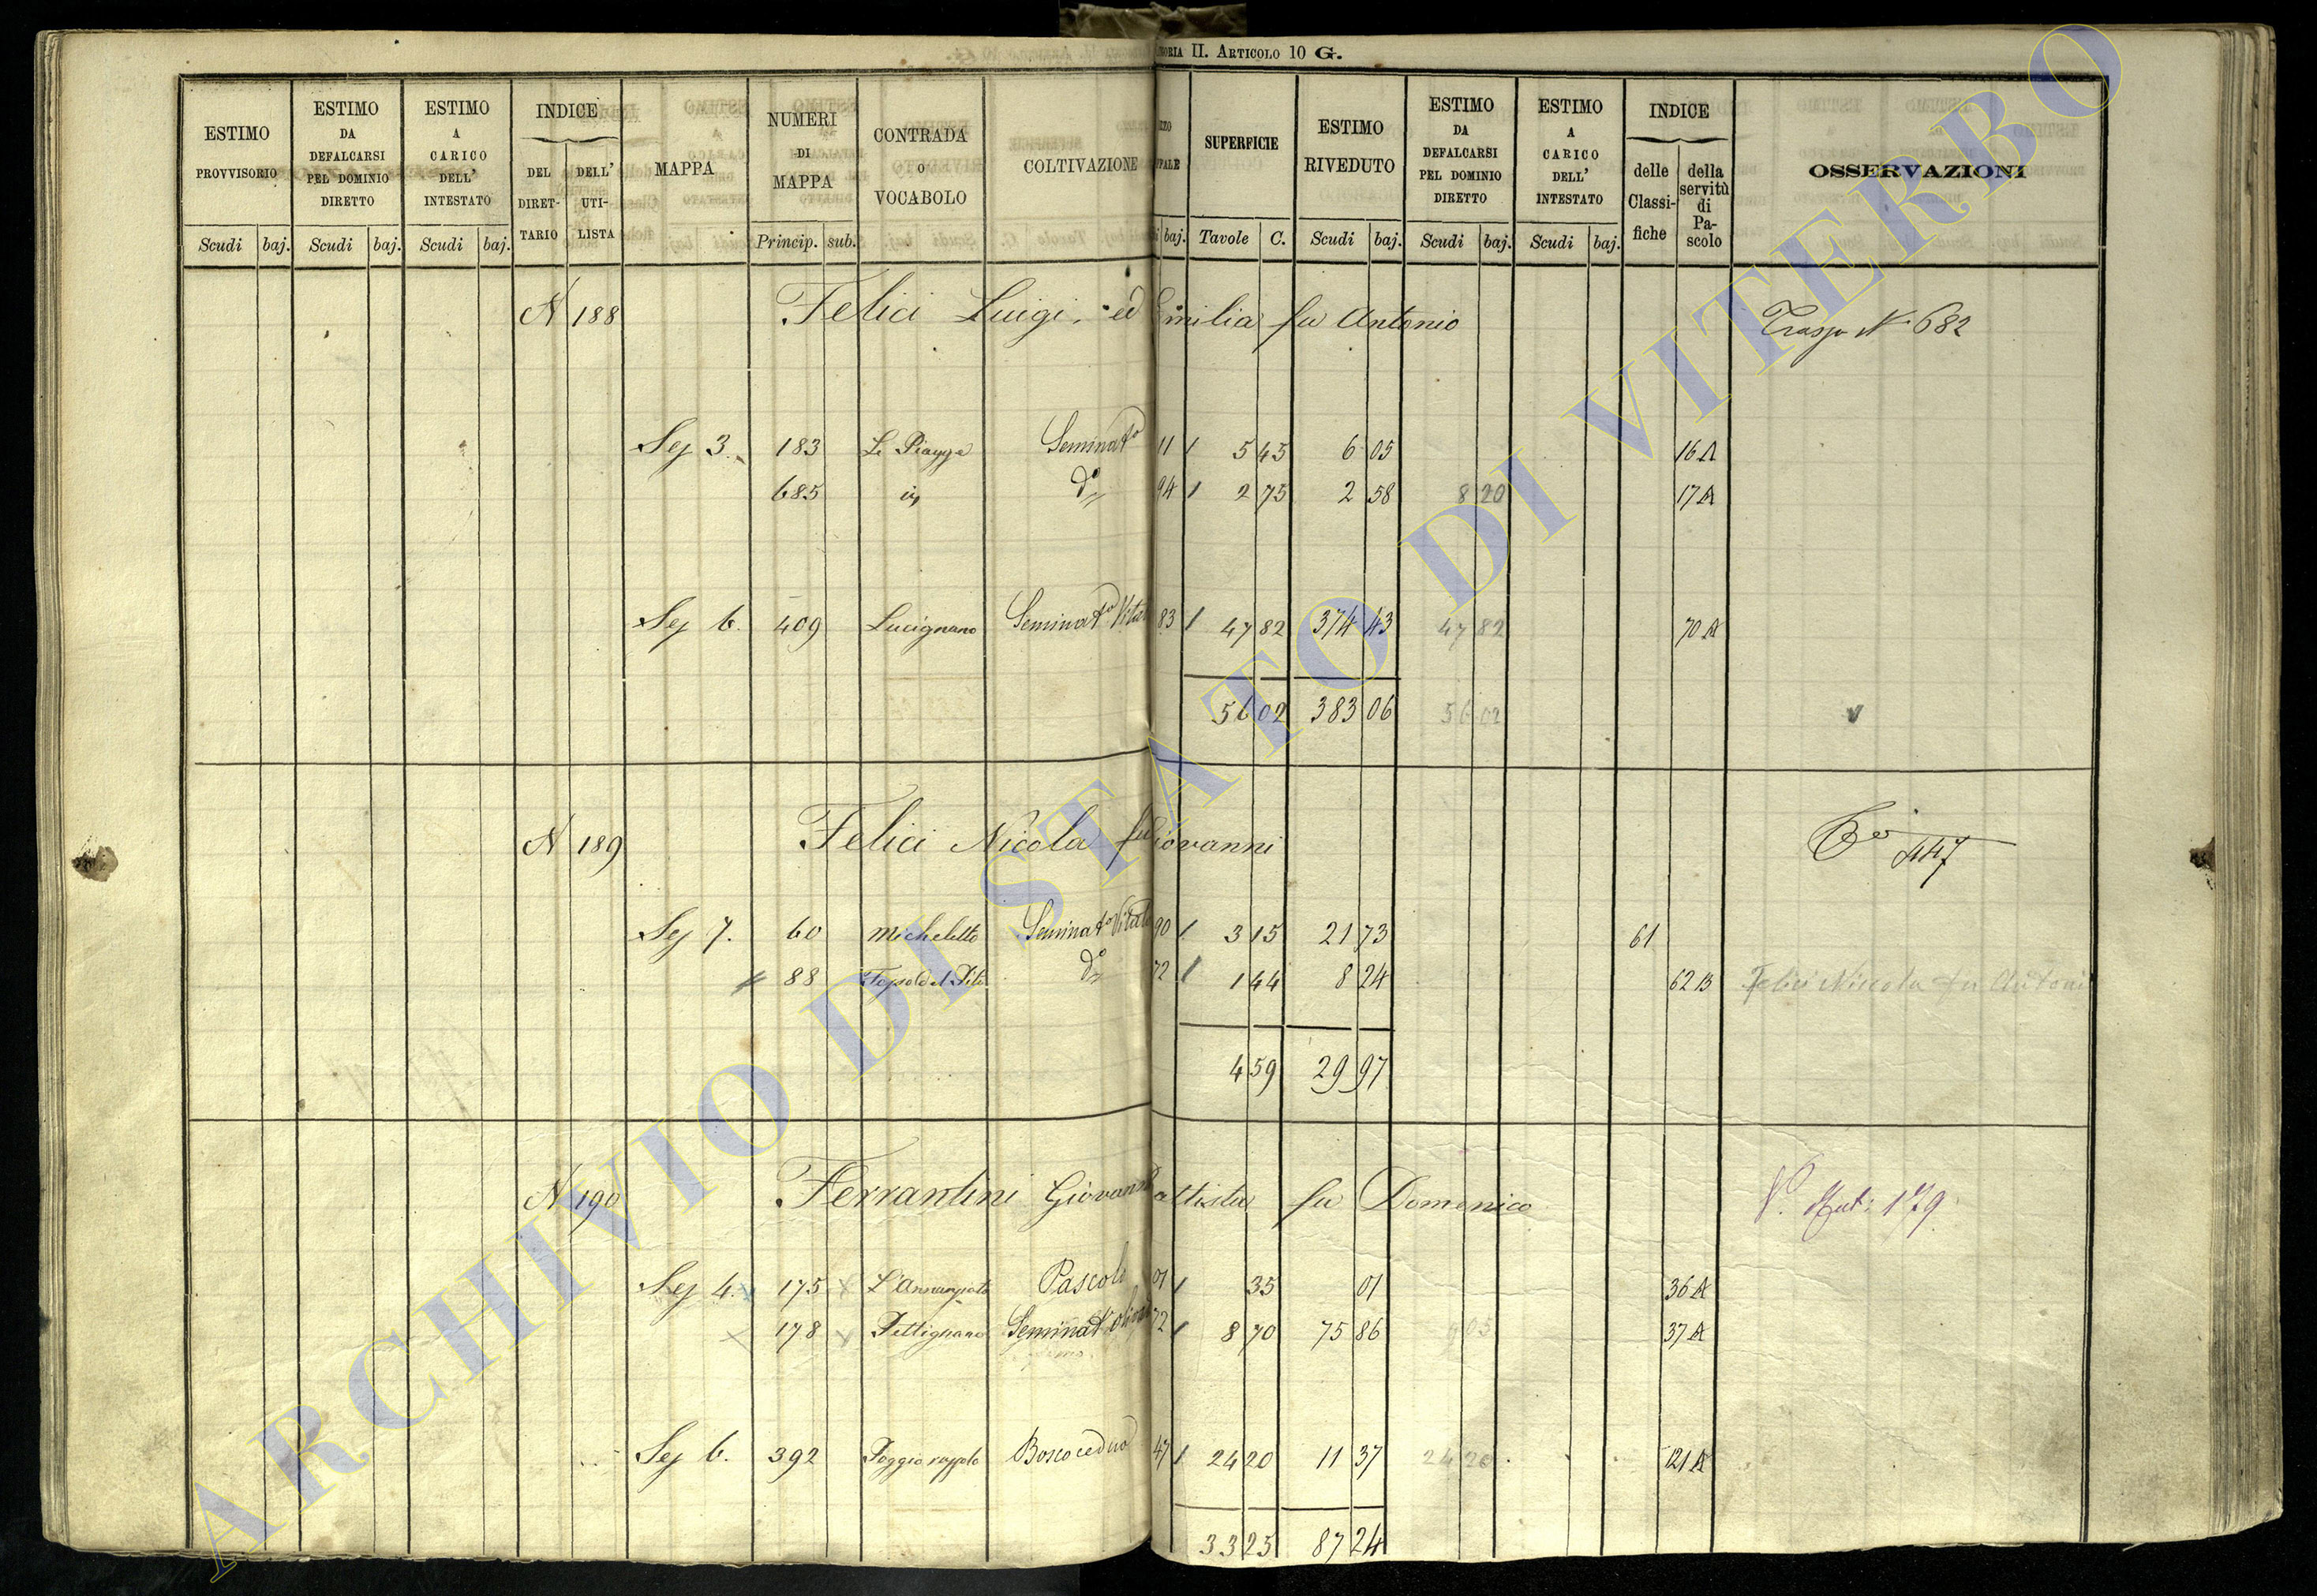 ORIA II. ARTICOLO 10 G.
ESTIMO PROVVISORIO
Scudi baj.
ESTIMO DA DEFALCARSI PEL DOMINIO DIRETTO
Scudi baj.
ESTIMO A CARICO DELL' INTESTATO
Scudi baj.
INDICE
DEL DIRET-TARIO
DELL' UTI-LISTA
MAPPA
NUMERI DI MAPPA
Princip. sub.
CONTRADA O VOCABOLO
COLTIVAZIONE
baj.
SUPERFICIE
Tavole C.
ESTIMO RIVEDUTO
Scudi baj.
ESTIMO DA DEFALCARSI PEL DOMINIO DIRETTO
Scudi baj.
ESTIMO A CARICO DELL' INTESTATO
Scudi baj.
INDICE
delle Classi-fiche
della servitù di Pa-scolo
OSSERVAZIONI
N 188 Felici Luigi, ed Emilia fu Antonio N. 682
Sez 3. 183 Le Piagge Seminato 11 / 5 45 6 05 16 A
685 id do 94 / 2 75 2 58 8 20 17 A
Sez 6. 409 Lucignano Seminato Vitato 83 / 47 82 374 43 47 82 70 A
56 02 383 06 56 02 v
N 189 Felici Nicola fu Giovanni 447
Sez 7. 60 Micheletto Seminato Vitato 90 / 3 15 21 73 61
88 do 72 / 1 44 8 24 62 B Felici Nicola fu Antoni
4 59 29 97
N 190 Ferrantini Giovanni Battista fu Domenico 179
Sez 4. 175 Pascolo 01 / 35 01 36 A
178 Pettignano Seminato Olivato 72 / 8 70 75 86 9 05 37 A
Sez 6. 392 Bosco ceduo 47 / 24 20 11 37 24 20 121 A
33 25 87 24
ARCHIVIO DI STATO DI VITERBO